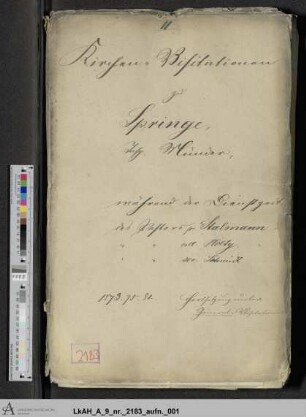 11
Kirchen-Visitationen
zu
Springe,
Insp. Münder,
während der Dienstzeit
des Pastors pr. Stalmann
" " adj. Hölty
" " Schmidt
1873, 75-81.
Fortsetzung unter
General-Visitation
2183
LkAH_A_9_nr._2183_aufn._001